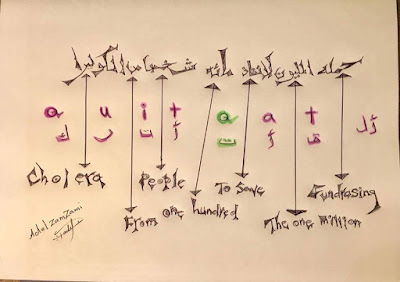 حمله المليون لإنقاذ مائه شخص من الكوليرا
a u i t a a t
Cholera People To Save Fundrasing
From one hundred The one Million
Adel Zamzami